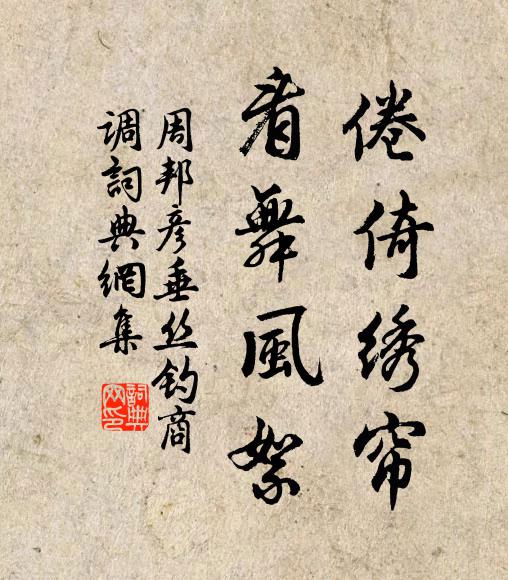 倦倚绣帘
看舞風絮
周邦彦垂丝钓商
调詞典網集
詞典网印